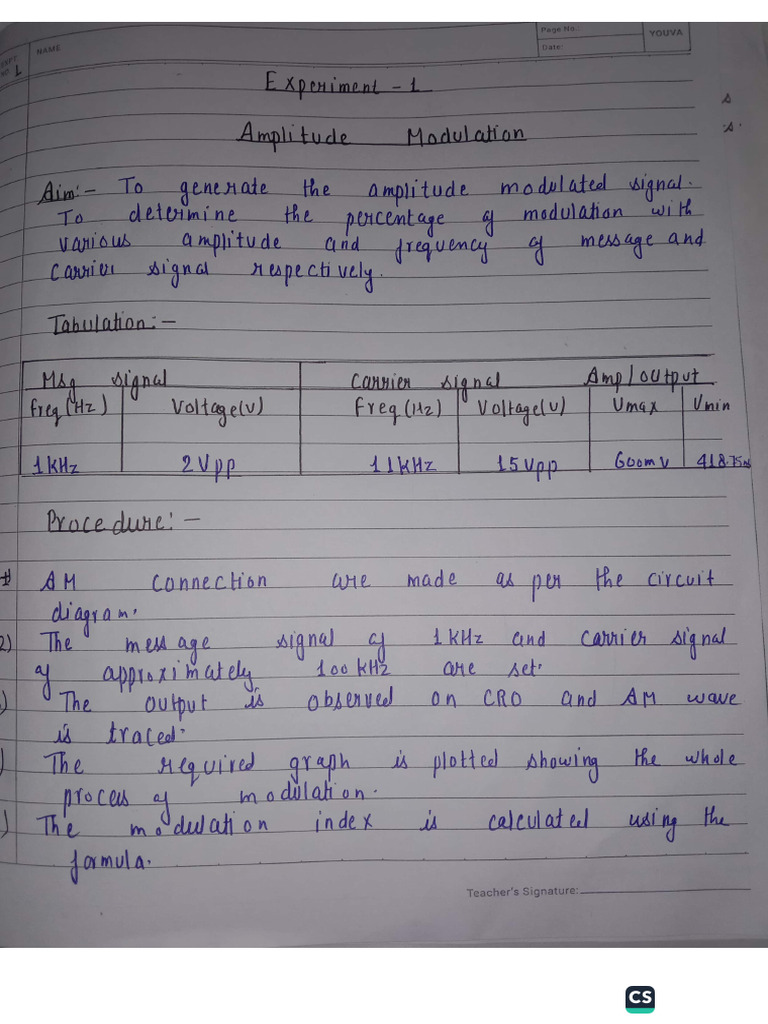 Page No...
YOUVA
Date:
EXPT. NO. 1
NAME
Experiment - 1
Amplitude Modulation
Aim:- To generate the amplitude modulated signal.
To determine the percentage of modulation with
various amplitude and frequency of message and
carrier signal respectively.
Tabulation:-
Msg signal Carrier signal Amp/output
freq(Hz) Voltage(V) Freq(Hz) Voltage(V) Vmax Vmin
1KHz 2Vpp 11KHz 15Vpp 600mV 418.75
Procedure:-
AM connection are made as per the circuit
diagram.
2) The message signal of 1KHz and carrier signal
of approximately 100KHz are set.
) The output is observed on CRO and AM wave
is traced.
) The required graph is plotted showing the whole
process of modulation.
) The modulation index is calculated using the
formula.
Teacher's Signature:
CS